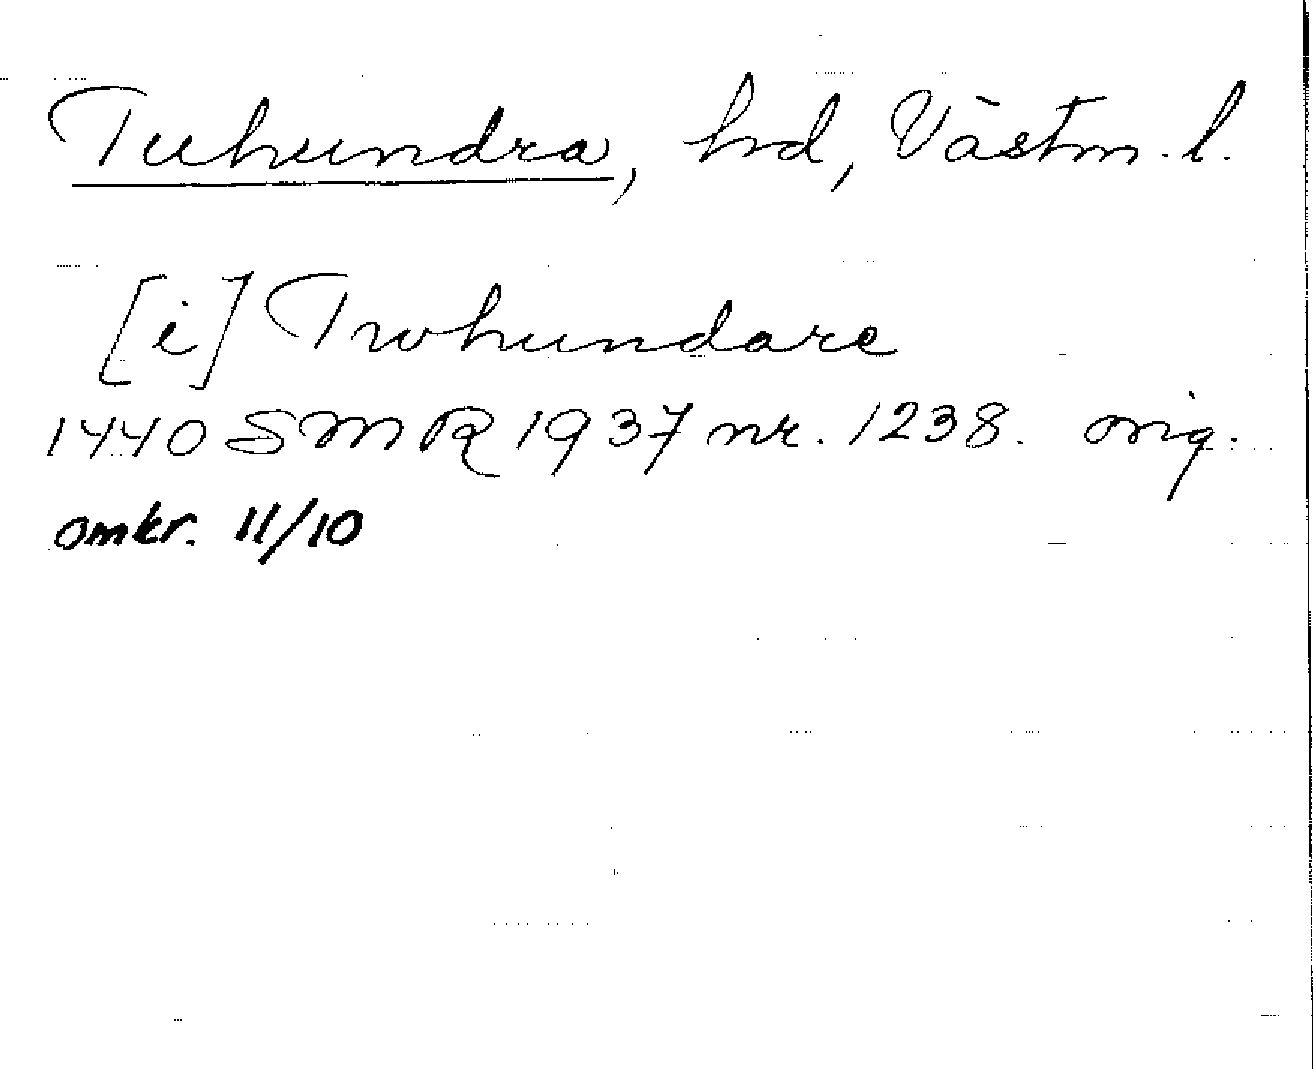 Tuhundra, hd, Västm. l.
[i] Twhundare
1440 SMR 1937 nr. 1238. orig.
omkr. 11/10